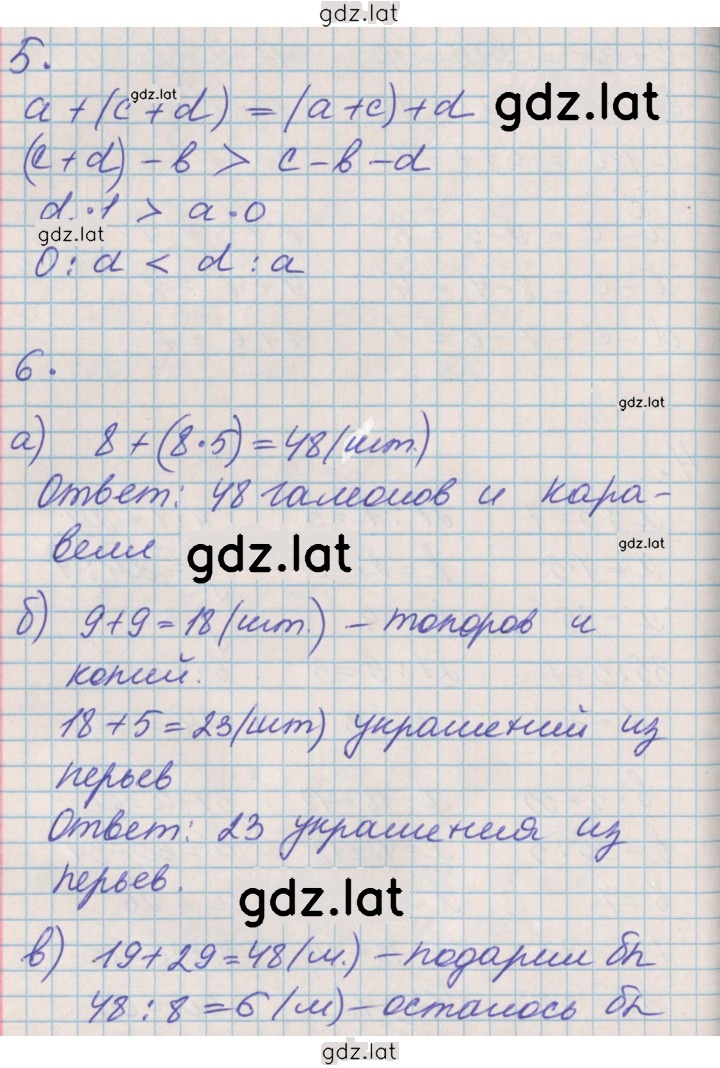 gdz.lat
5.
gdz.lat
a + (c + d) = (a + c) + d gdz.lat
(c + d) - в > c - в - d
d · 1 > a · 0
gdz.lat
0 : d < d : a
6.
gdz.lat
а) 8 + (8 · 5) = 48 (шт.)
Ответ: 48 галионов и кара-
велл gdz.lat gdz.lat
б) 9 + 9 = 18 (шт.) – топоров и
копий.
18 + 5 = 23 (шт) украшений из
перьев
Ответ: 23 украшения из
перьев.
gdz.lat
в) 19 + 29 = 48 (м.) – подарили бы
48 : 8 = 6 (м) – осталось бы
gdz.lat